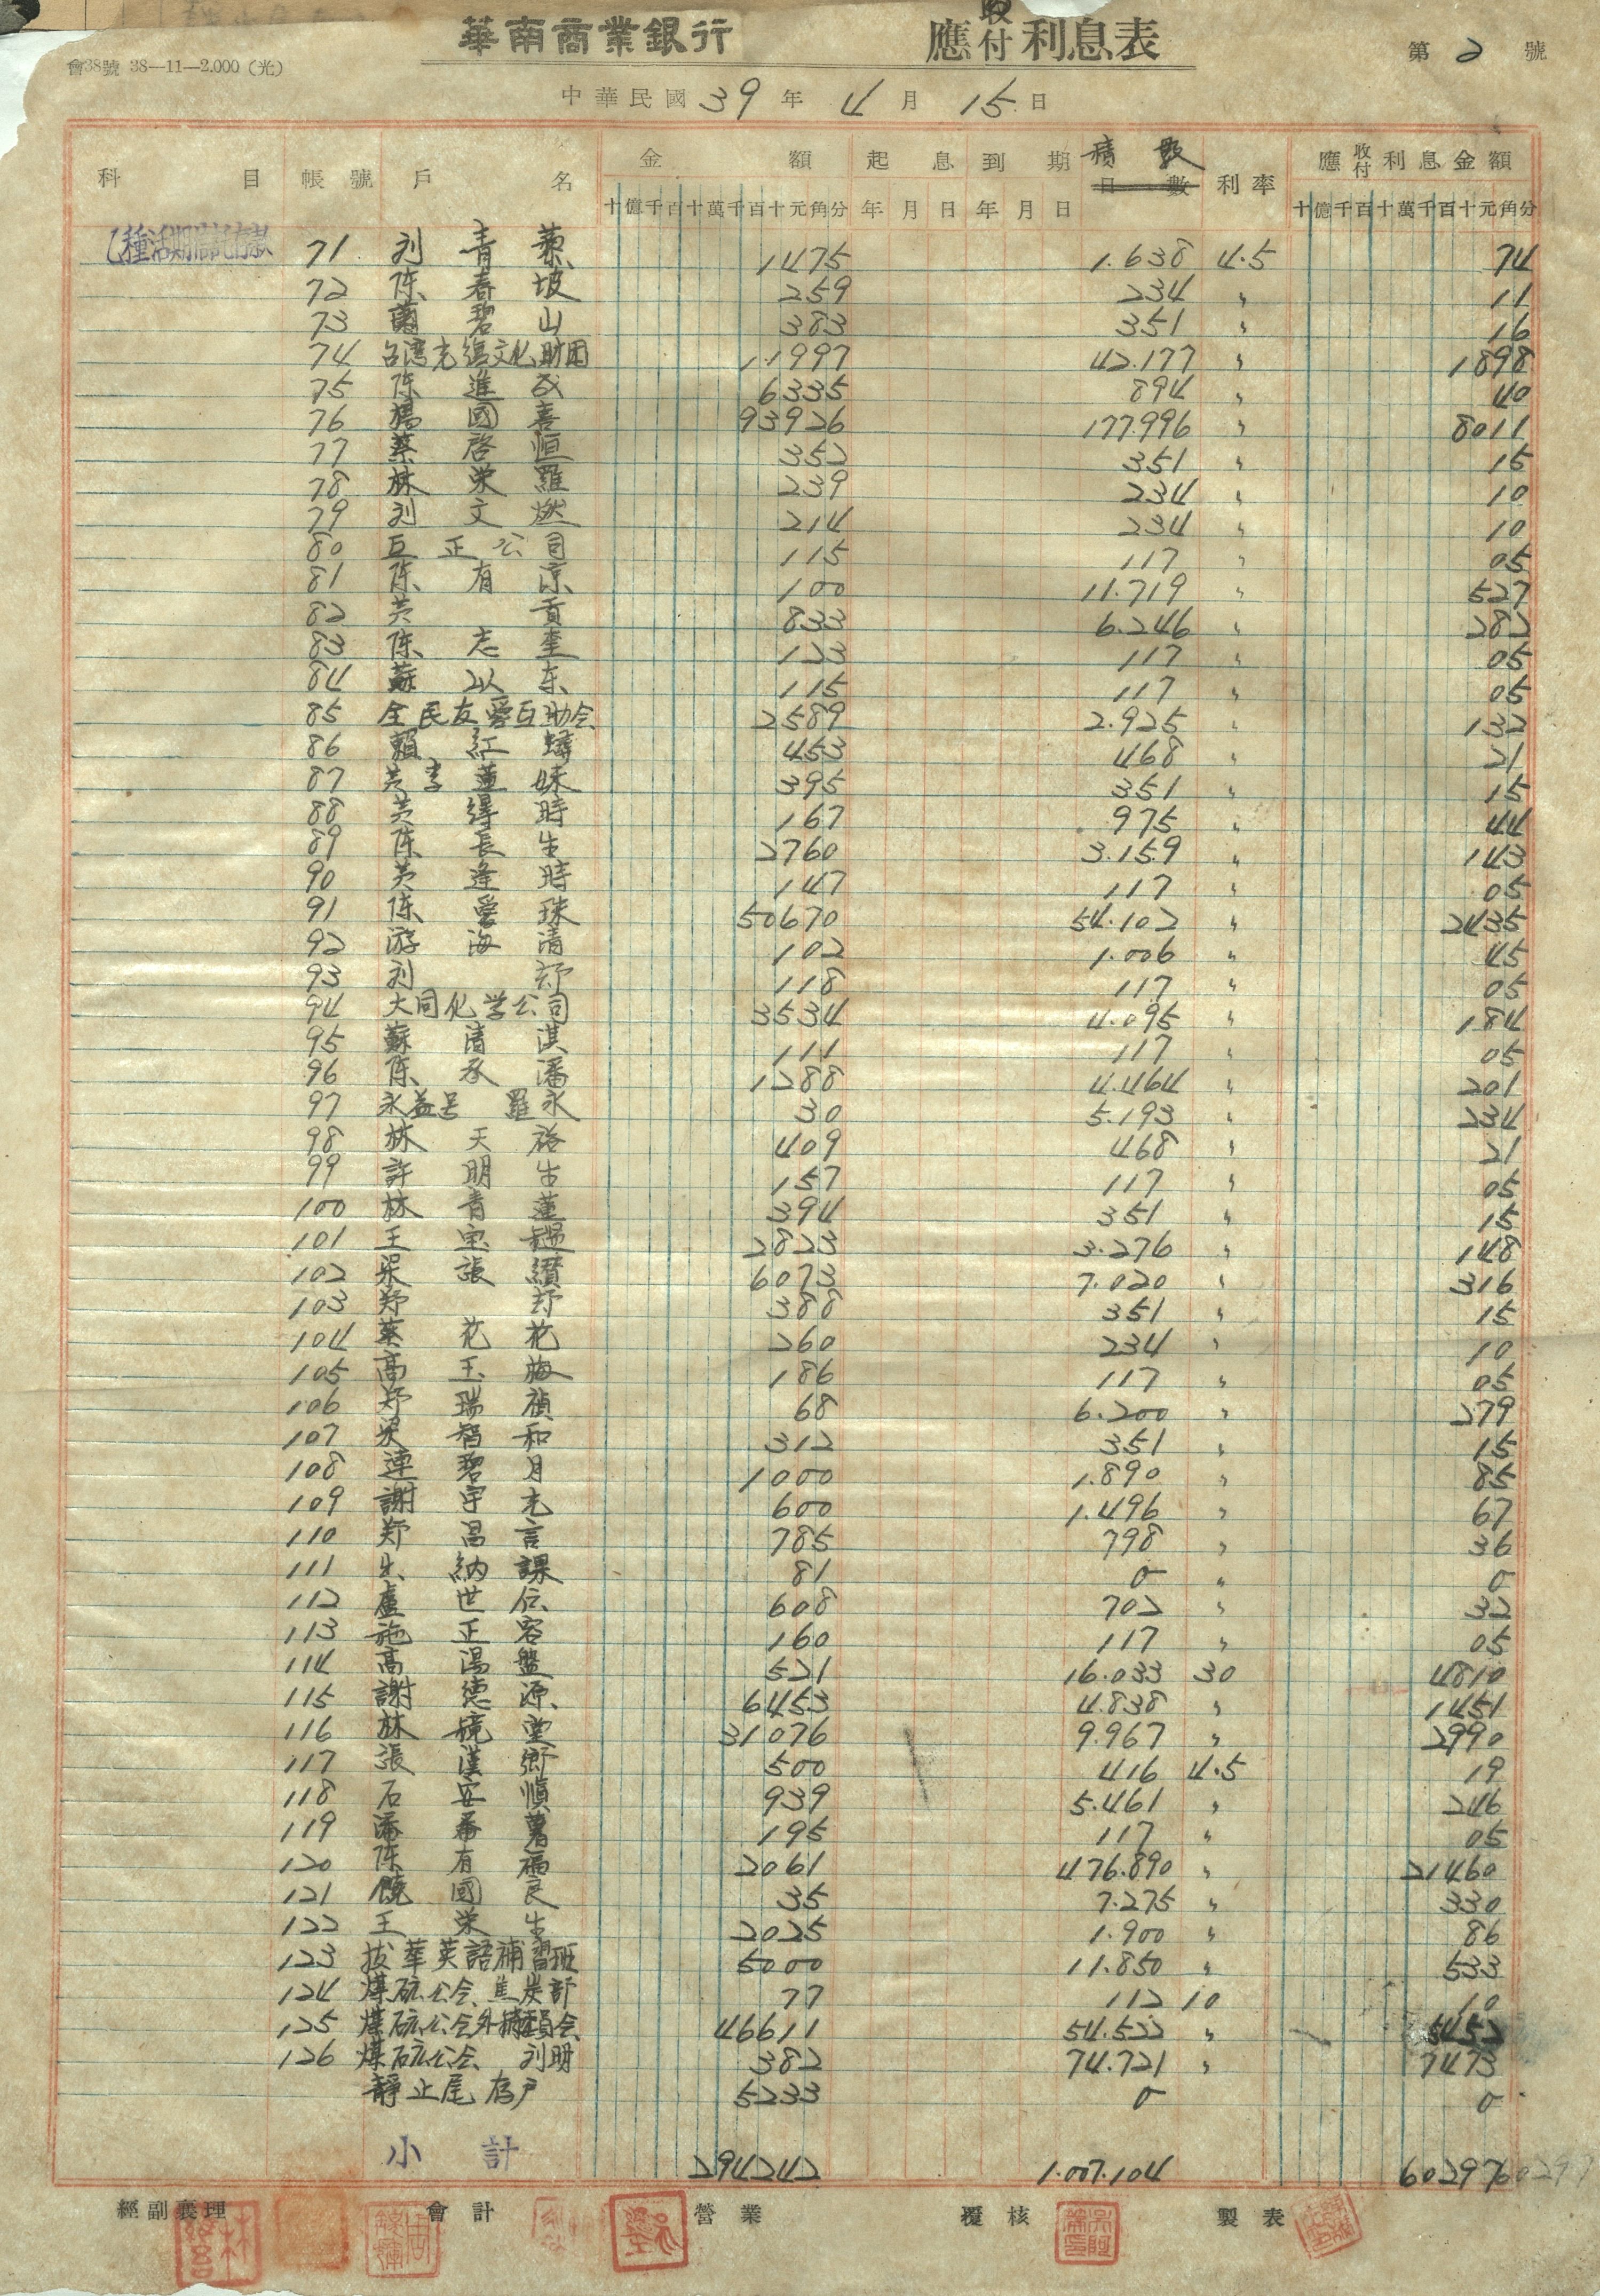 華南商業銀行 應收付利息表 第 2 號
會38號 38—11—2.000(光)
中華民國 39 年 4 月 15 日
科目 帳號 戶名 金額 起息 到期 積數 日數 利率 應收付利息金額
十億千百十萬千百十元角分 年月日 年月日 十億千百十萬千百十元角分
乙種活期 存款 71 刘青 1475 1.638 4.5 74
72 陈春坡 259 234 〃 11
73 碧山 383 351 〃 16
74 台湾光復文化財団 11997 42.177 〃 1898
75 陈進成 6335 894 〃 40
76 楊國喜 93926 177.996 〃 8011
77 蔡啓恒 352 351 〃 15
78 林栄羅 239 234 〃 10
79 刘文燃 214 234 〃 10
80 互正公司 115 117 〃 05
81 陈有凉 100 11.719 〃 527
82 黄貢 833 6.246 〃 282
83 陈志奎 123 117 〃 05
84 蘇以东 115 117 〃 05
85 全民友爱互助会 2589 2.925 〃 132
86 賴紅 453 468 〃 21
87 黄李蓮妹 395 351 〃 15
88 黄得時 167 975 〃 44
89 陈長生 2760 3.159 〃 143
90 黄逢時 147 117 〃 05
91 陈爱珠 50670 54.102 〃 2435
92 游海清 102 1.006 〃 45
93 刘 118 117 〃 05
94 大同化学公司 3534 4.095 〃 184
95 蘇清淇 111 117 〃 05
96 陈承潘 1288 4.464 〃 201
97 永益号 羅永 30 5.193 〃 234
98 林天裕 409 468 〃 21
99 許明生 157 117 〃 05
100 林青蓮 394 351 〃 15
101 王宝 2823 3.276 〃 148
102 梁張纘 6073 7.020 〃 316
103 郑 388 351 〃 15
104 蔡花花 260 234 〃 10
105 高玉梅 186 117 〃 05
106 郑瑞禎 68 6.200 〃 279
107 梁智和 312 351 〃 15
108 連碧月 1000 1.890 〃 85
109 謝宇光 600 1.496 〃 67
110 郑昌言 785 798 〃 36
111 出納課 81 0 〃 0
112 盧世伝 608 702 〃 32
113 施正容 160 117 〃 05
114 高湯盤 521 16.033 30 4810
115 謝德源 6453 4.838 〃 1451
116 林境堂 31076 9.967 〃 2990
117 張漢鄉 500 416 4.5 19
118 石安慎 939 5.461 〃 246
119 潘番薯 195 117 〃 05
120 陈有福 2061 476.890 〃 21460
121 饒國良 35 7.275 〃 330
122 王栄生 2025 1.900 〃 86
123 拔萃英語補習班 5000 11.850 〃 533
124 煤砿公会焦炭部 77 112 10 10
125 煤砿公会外 会 46611 54.522 〃 5452
126 煤砿公会 刘明 382 74.721 〃 7473
静止尾存戶 5233 0 0
小計 294242 1.007.104 60297 60297
經副襄理 會計 營業 覆核 製表